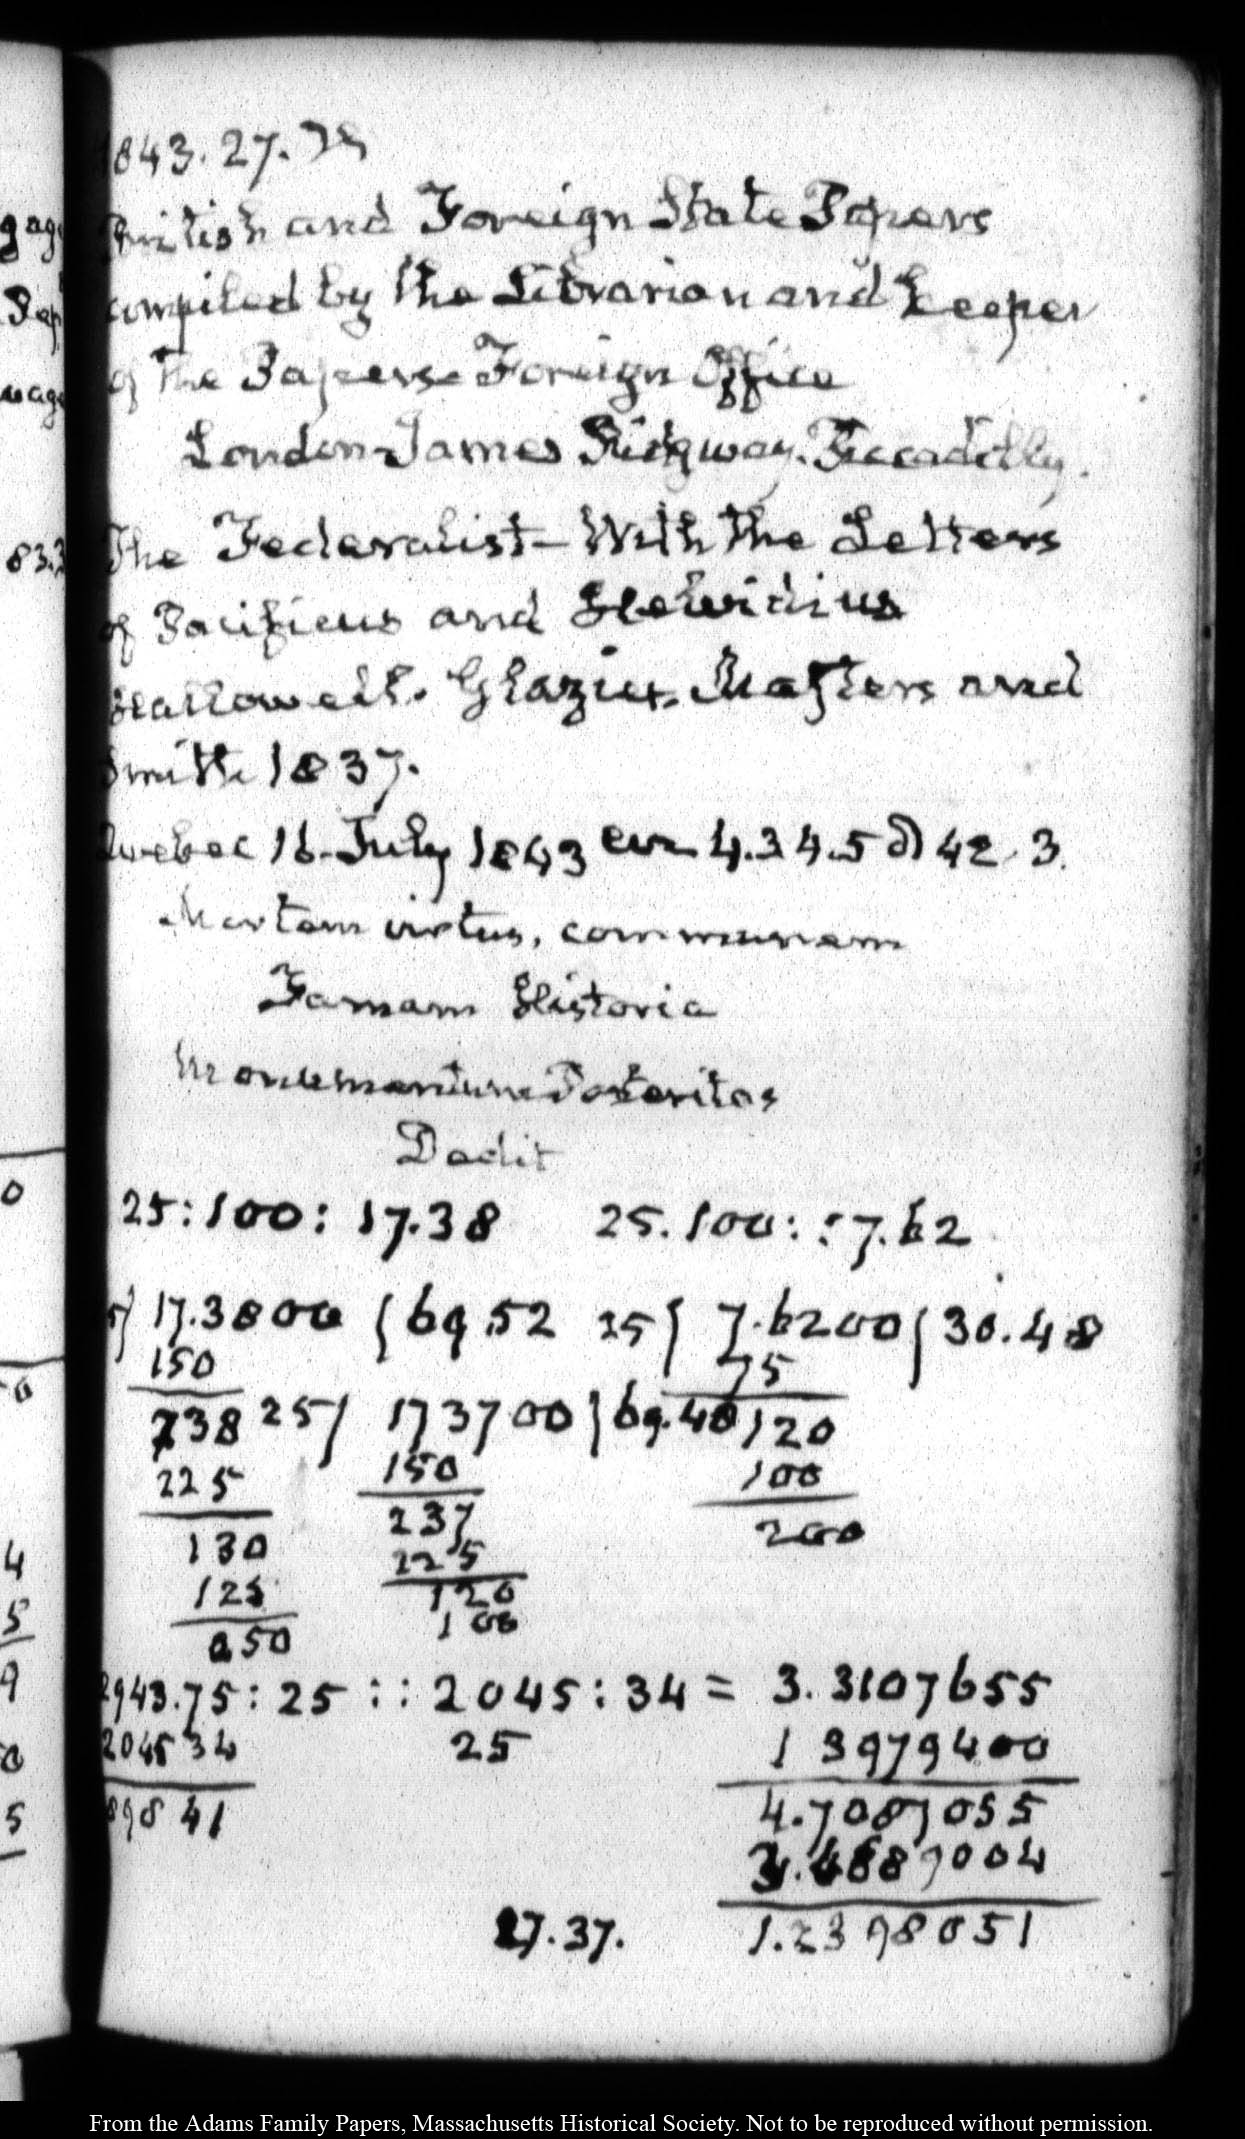 1843. 27.
British and Foreign State Papers
compiled by the Librarian and Keeper
of the Papers Foreign Office
London James Ridgway. Piccadilly.
The Federalist — With the Letters
of Pacificus and Helvidius
Hallowell. Glazier, Masters and
Smith 1837.
Quebec 16. July 1843 4.34.5 42. 3.
Mortem virtus, communem
Famam Historia
Monumentum Posteritas
Dedit
25:100: 17.38 25.100: :7.62
17.3800 69.52 25 7.6200 30.48
150 75
238 25 173700 69.48 120
225 150 100
237 200
130 225
125 120
100
050
2943.75 : 25 : : 2045 : 34 = 3. 3107655
2045 34 25 1 3979400
4.7087055
898 41 3.4689004
27.37. 1.2398051
gag
Pap
83.3
0
4
5
9
5
From the Adams Family Papers, Massachusetts Historical Society. Not to be reproduced without permission.